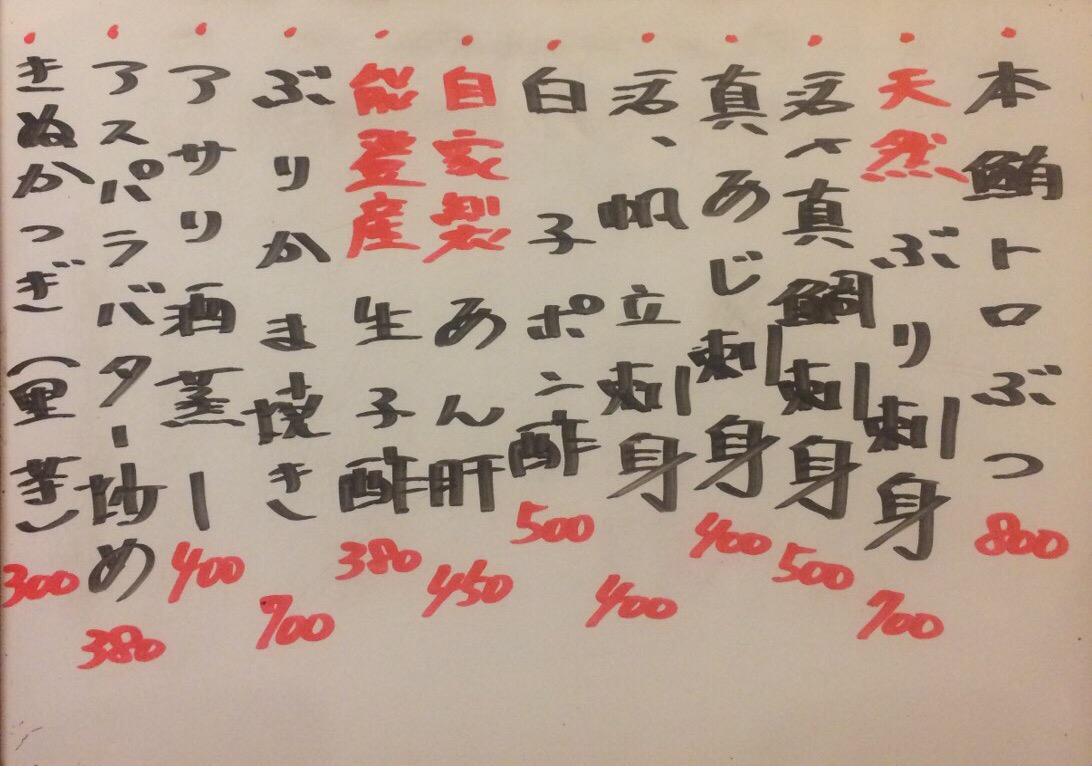 ・本鮪トロぶつ 800
・天然ぶり刺身 700
・活〆真鯛刺身 500
・真あじ刺身 400
・活、帆立刺身 400
・白子ポン酢 500
・自家製あん肝 450
・能登産生子酢 380
・ぶりかま焼き 700
・アサリ酒蒸し 400
・アスパラバター炒め 380
・きぬかつぎ(里芋) 300